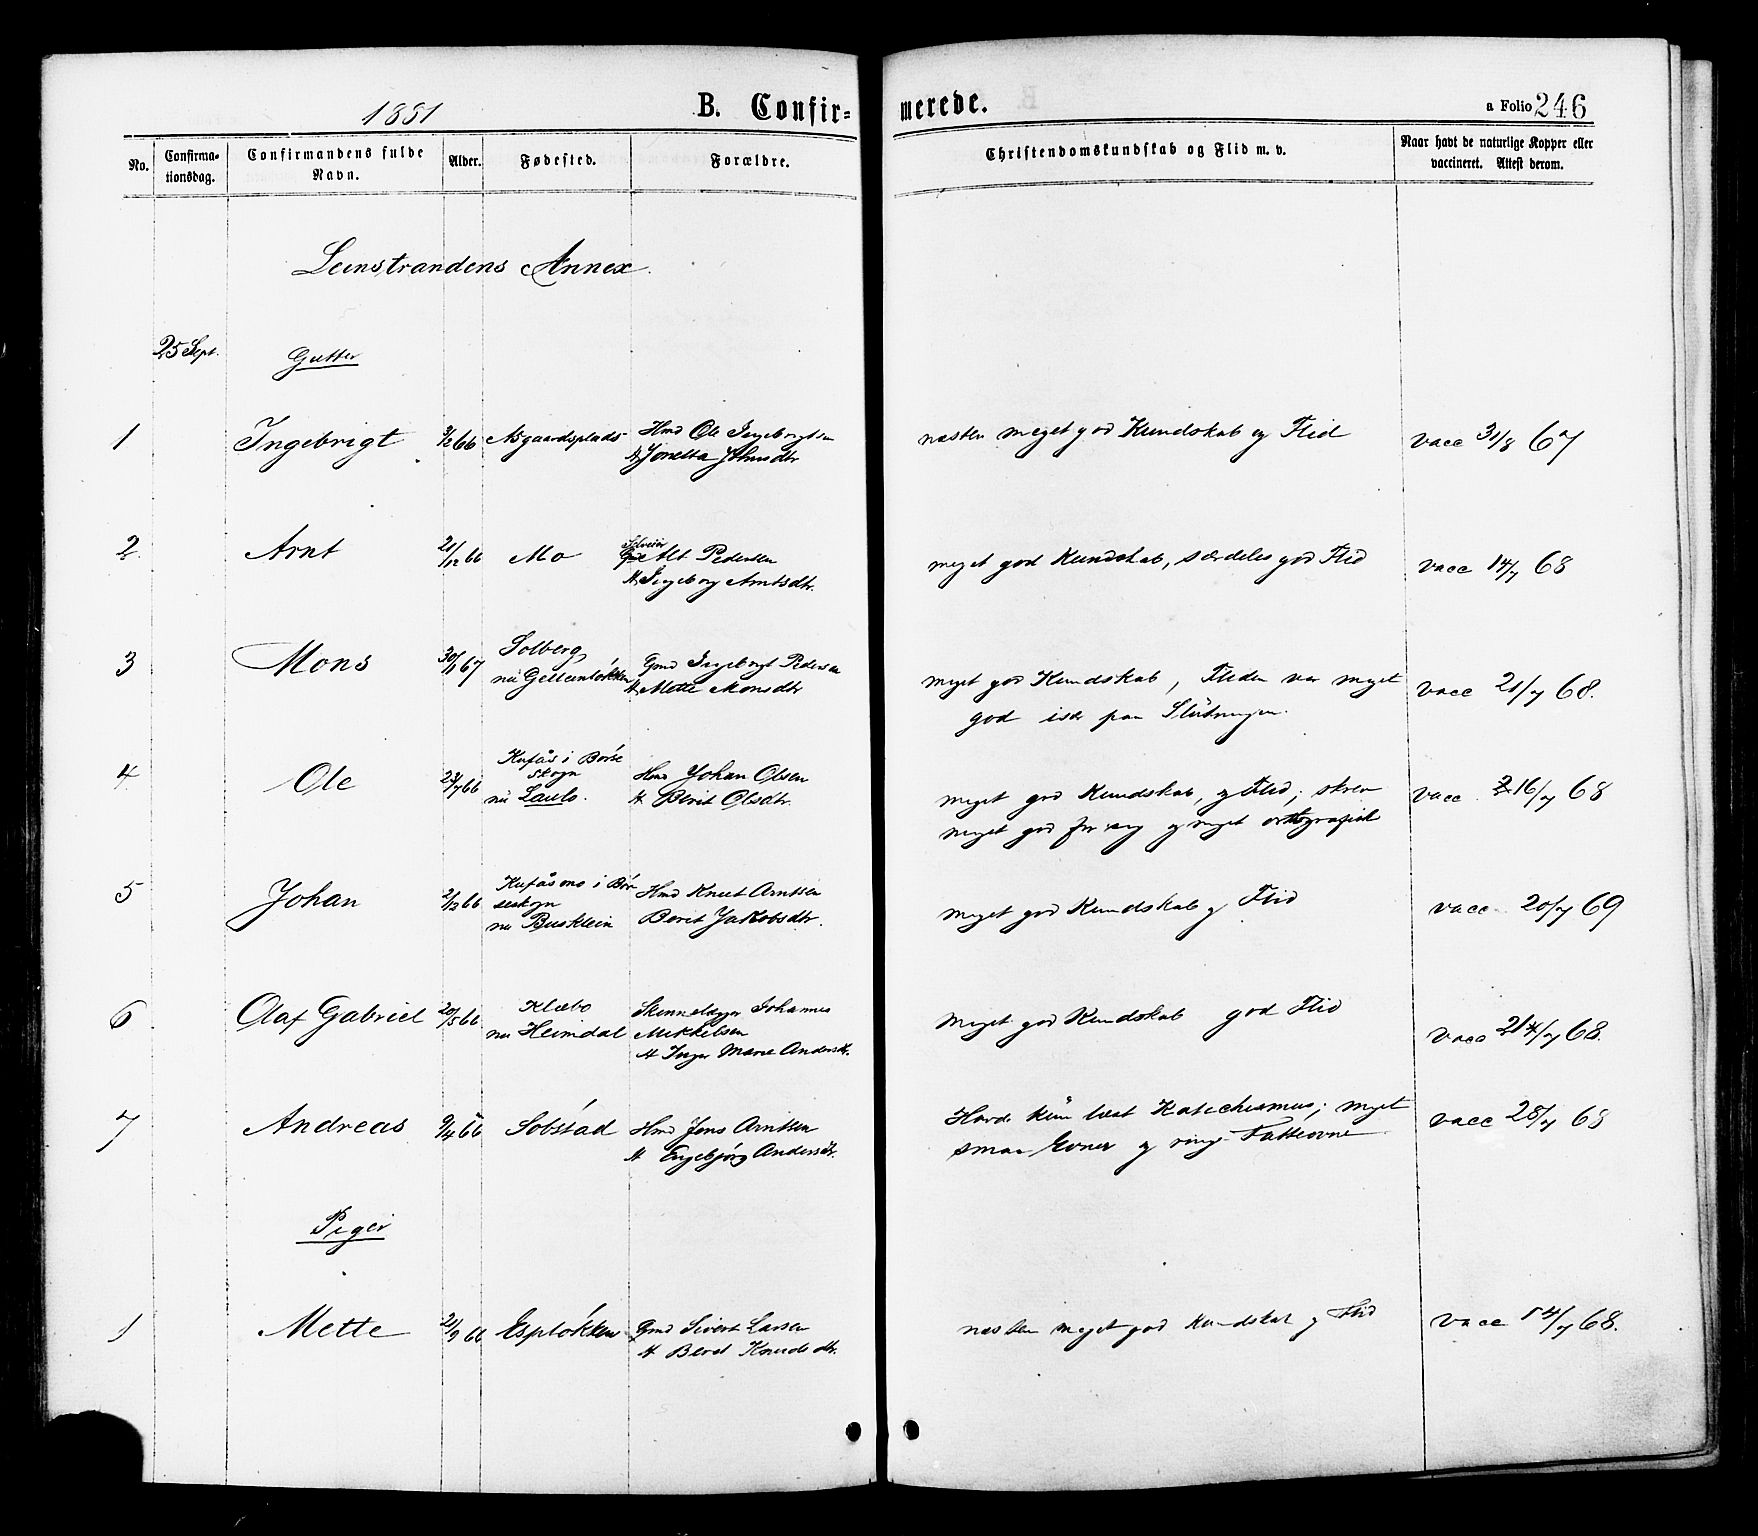 1881 B. Confir= merede. a Folio 246
No. Confirma-tionsdag. Confirmandens fulde Navn. Alder. Fødested. Forældre. Christendomskundskab og Flid m. v. Naar havt de naturlige Kopper eller vaccineret. Attest derom.
Leinstrandens Annex.
25 Sept. Gutter
1 Ingebrigt 3/2 66 Hmd Ole Ingebrigtsen næsten meget god Kundskab og Flid vacc 31/8 67
H. Jonetta Johnsdtr
2. Arnt 20/12 66 Mo Pedersen meget god Kundskab, særdeles god Flid vacc 14/7 68
H. Ingeborg Arntsdtr.
3 Mons 30/1 67 Solberg, Gmd Ingebrigt Pedersen meget god Kundskab, Fliden var meget vacc 21/7 68.
nu H. Mette Monsdtr god især paa Slutningen.
4. Ole 66 i Børse Hmd Johan Olsen meget god Kundskab, og Flid; skrev vacc. 16/7 68
skogn
nu H. Berit Olsdtr. meget god og meget orthografisk
5 Johan 2/12 66 i Bør Hmd Knut Arntsen meget god Kundskab og Flid vacc. 20/7 69
seskogn
nu Busklein Berit Jakobsdtr.
6 Olaf Gabriel 20/5 66 Klæbo Johannes meget god Kundskab god Flid vacc 68.
nu Heimdal Mikkelsen
H Inger Marie Andersdtr.
7 Andreas 9/4 66 Sobstad Hmd Jens Arntsen Havde kun læst Katechismus; meget vacc 28/7 68
H Ingebjørg Andersdtr. smaa Evner og ringe Fatteevne
Piger
1 Mette 21/9 66 Espløkken Gmd Sivert Larsen næsten meget god Kundskab og Flid vacc 14/7 68.
H Berit Knudsdtr.